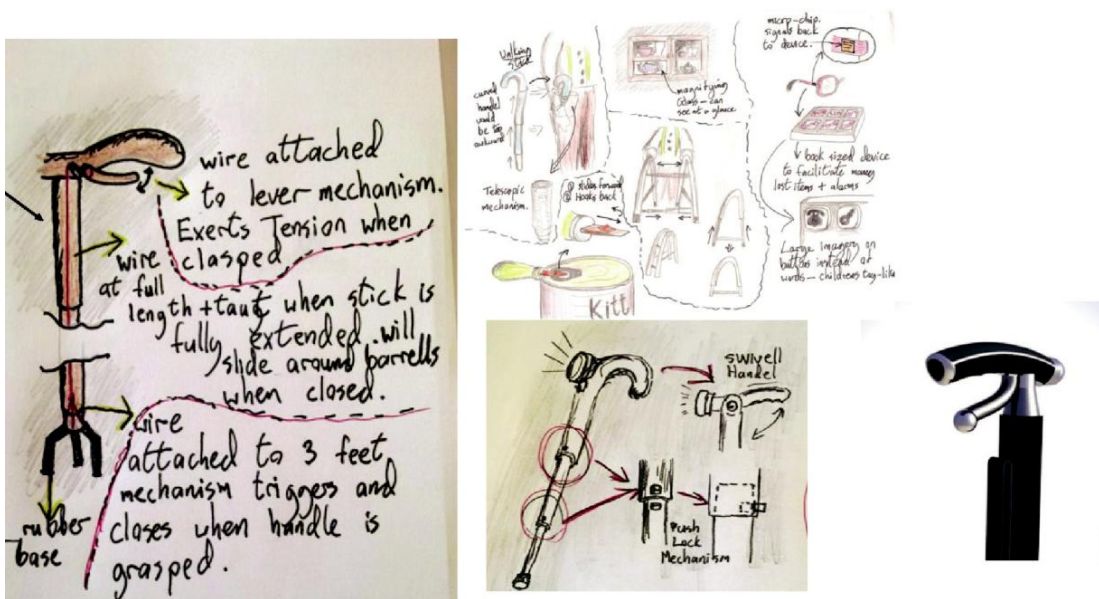 wire attached
to lever mechanism.
Exerts Tension when
clasped
wire
at full
length + taut when stick is
fully extended. will
slide around barrells
when closed.
wire
attached to 3 feet
mechanism triggers and
closes when handle is
grasped.
rubber
base
Walking
Stick
curved
handel
would
be too
awkward
Telescopic
mechanism.
slides forward
Hooks back
Kitt
magnifying
Glass - can
see at a glance
micro-chip.
signals back
to device.
book sized device
to facilitate many
lost items + alarms
Large imagery on
buttons instead of
words - childrens toy-like
Swivell
Handel
Push
Lock
Mechanism